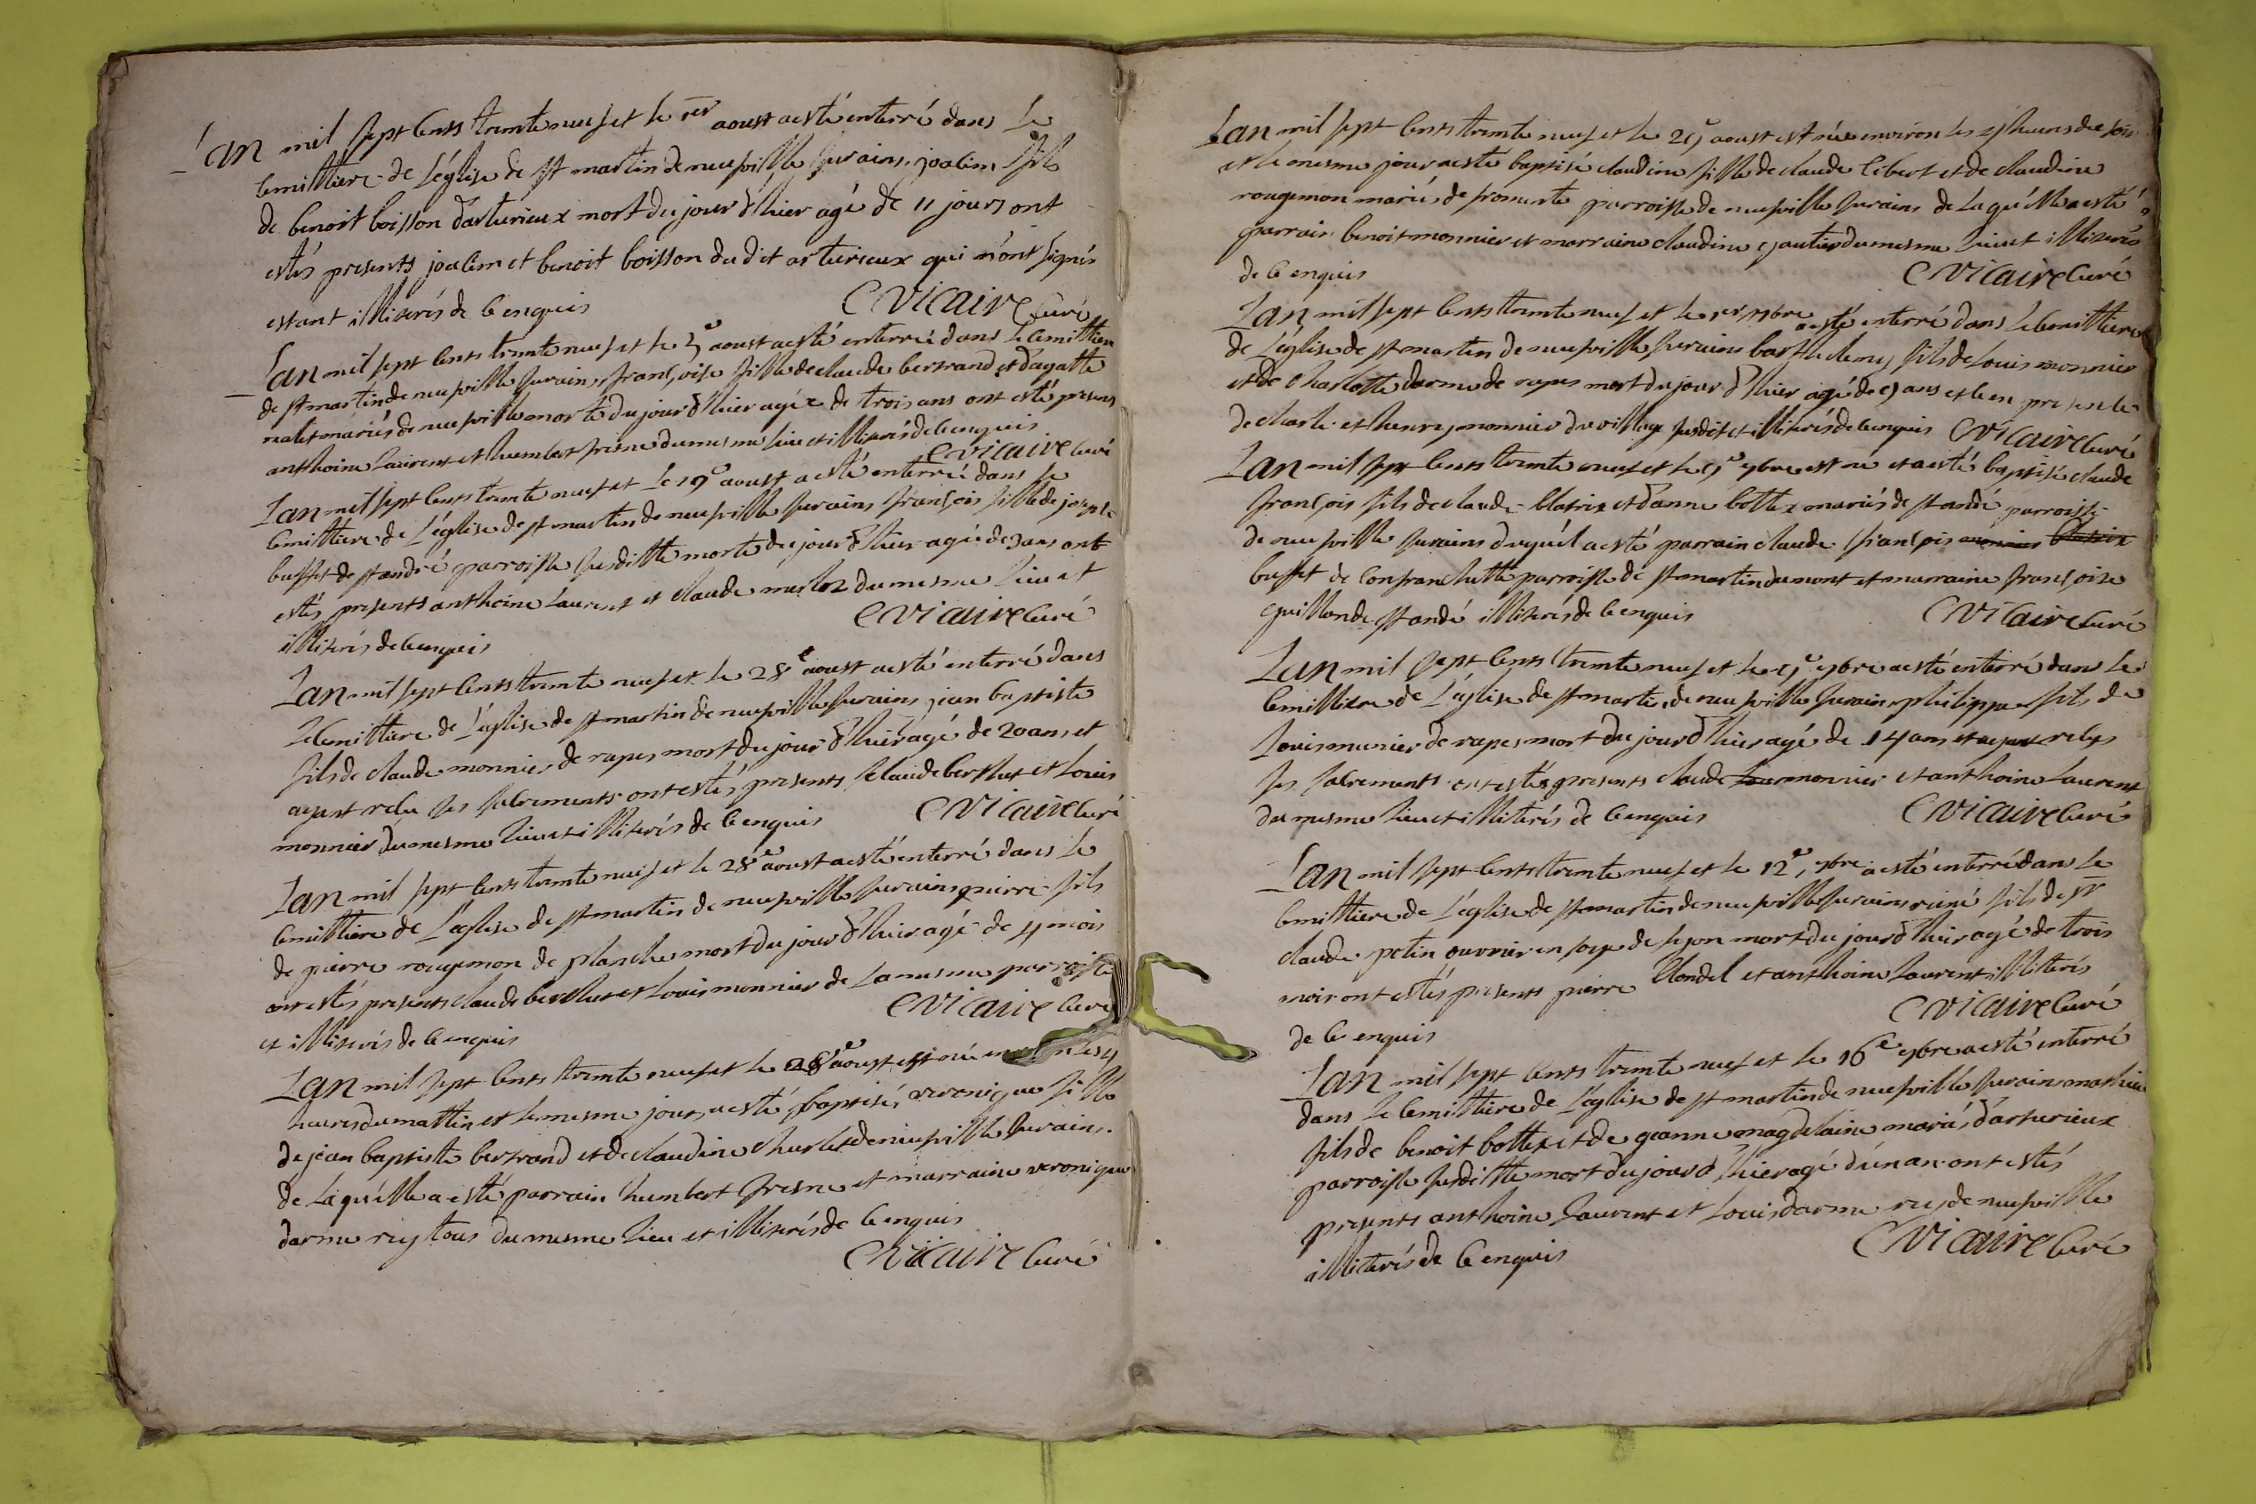 Lan mil sept cents trente neuf et le 1er aoust a esté enterré dans le
cemittiere de L'église de st martin de neufville surains joalim fils
de benoit boisson d'arturieux mort du jour d'hier agé de 11 jours ont
estés presents joalim et benoit boisson du dit arturieux qui n'ont signés
estant illiterés de ce enquis Cvicaire Curé
Lan mil sept cents trente neuf et le aoust a esté enterrée dans le cemittiere
de st martin de neufville surains françoise fille de claude bertrand et d'agatte
mariés de neufville morte du jour d'hier agée de trois ans ont esté presens
anthoine Laurent et humbert fresne du mesme lieu et illiterés de ce enquis
Cvicaire curé
Lan mil sept cents trente neuf et Le 19e aoust a esté enterrée dans le
cemittiere de L'église de st martin de neufville surains françois fille de joseph
buffet de st andré parroisse susditte morte du jour d'hier agée de 3 ans ont
estés presents anthoine Laurent et claude du mesme lieu et
illiterés de ce enquis Cvicaire Curé
Lan mil sept cents trente neuf et le 28e aoust a esté enterré dans
Le cemittiere de L'église de st martin de neufville surains jean baptiste
fils de claude monnier de rapes mort du jour d'hier agé de 20 ans et
ayant reçu ses sacrements ont estés presents claude berthet et Louis
monnier du mesme lieu et illiterés de ce enquis Cvicaire Curé
Lan mil sept cents trente neuf et le 28e aoust a esté enterré dans le
cemittiere de L'église de st martin de neufville surains pierre fils
de pierre rougemon de planche mort du jour d'hier agé de 4 mois
ont estés presents claude berthet et Louis monnier de la mesme parroisse
et illiterés de ce enquis Cvicaire Curé
Lan mil sept cents trente neuf et le 28e aoust est née environ les 4
heures du mattin et le mesme jour a esté baptisé veronique fille
de jean baptiste bertrand et de claudine de neufville surains.
de la qu'elle a esté parrain humbert fresne et marraine veronique
darme rey tous du mesme lieu et illiterés de ce enquis
Cvicaire Curé
Lan mil sept cents trente neuf et le 29e aoust est née environ les heures de soir
et le mesme jour a esté baptisé claudine fille de claude libert et de claudine
rougemon mariés de fromente parroisse de neufville surains de la qu'elle a esté
parrain benoit monnier et marraine claudine gautier du mesme lieu et illiterés
de ce enquis Cvicaire Curé
Lan mil sept cents trente neuf et le 1er 7bre a esté enterré dans le cemittiere
de L'église de st martin de neufville surains barthelemy fils de Louis monnier
et de charlotte darme de rapes mort du jour d'hier agé de 9 ans et le en presence
de charle et henry monnier du village susdit et illiterés de ce enquis Cvicaire Curé
Lan mil sept cents trente neuf et le 9e 7bre est né et a esté baptisé claude
françois fils de claude blatrix et d'anne bottex mariés de st andé parroisse
de neufville surains duquel a esté parrain claude françois
buffet de Confranchette parroisse de st martin du mont et marraine françoise
guillon de st andé illiterés de ce enquis Cvicaire Curé
Lan mil sept cents trente neuf et le 9e 7bre a esté enterré dans le
cemittiere de L'église de st martin de neufville surains philippe fils de
Louis munier de rapes mort du jour d'hier agé de 14 ans et ayant reçus
ses sacrements ont estés presents claude monnier et anthoine Laurent
du mesme lieu et illiterés de ce enquis Cvicaire Curé
Lan mil sept cents trente neuf et le 12e 7bre a esté enterré dans le
cemittiere de L'église de st martin de neufville surains réné fils de sr
claude petin ouvrier en soye de lyon mort du jour d'hier agé de trois
mois ont estés presents pierre blondel et anthoine Laurent illiterés
de ce enquis Cvicaire Curé
Lan mil sept cents trente neuf et le 16e 7bre a esté enterré
dans le cemittiere de L'église de st martin de neufville surains mathieu
fils de benoit bottex et de jeanne magdelaine mariés d'arturieux
parroisse susditte mort du jour d'hier agé d'un an ont estés
presents anthoine Laurent et Louis darme rey de neufville
illiterés de ce enquis Cvicaire Curé